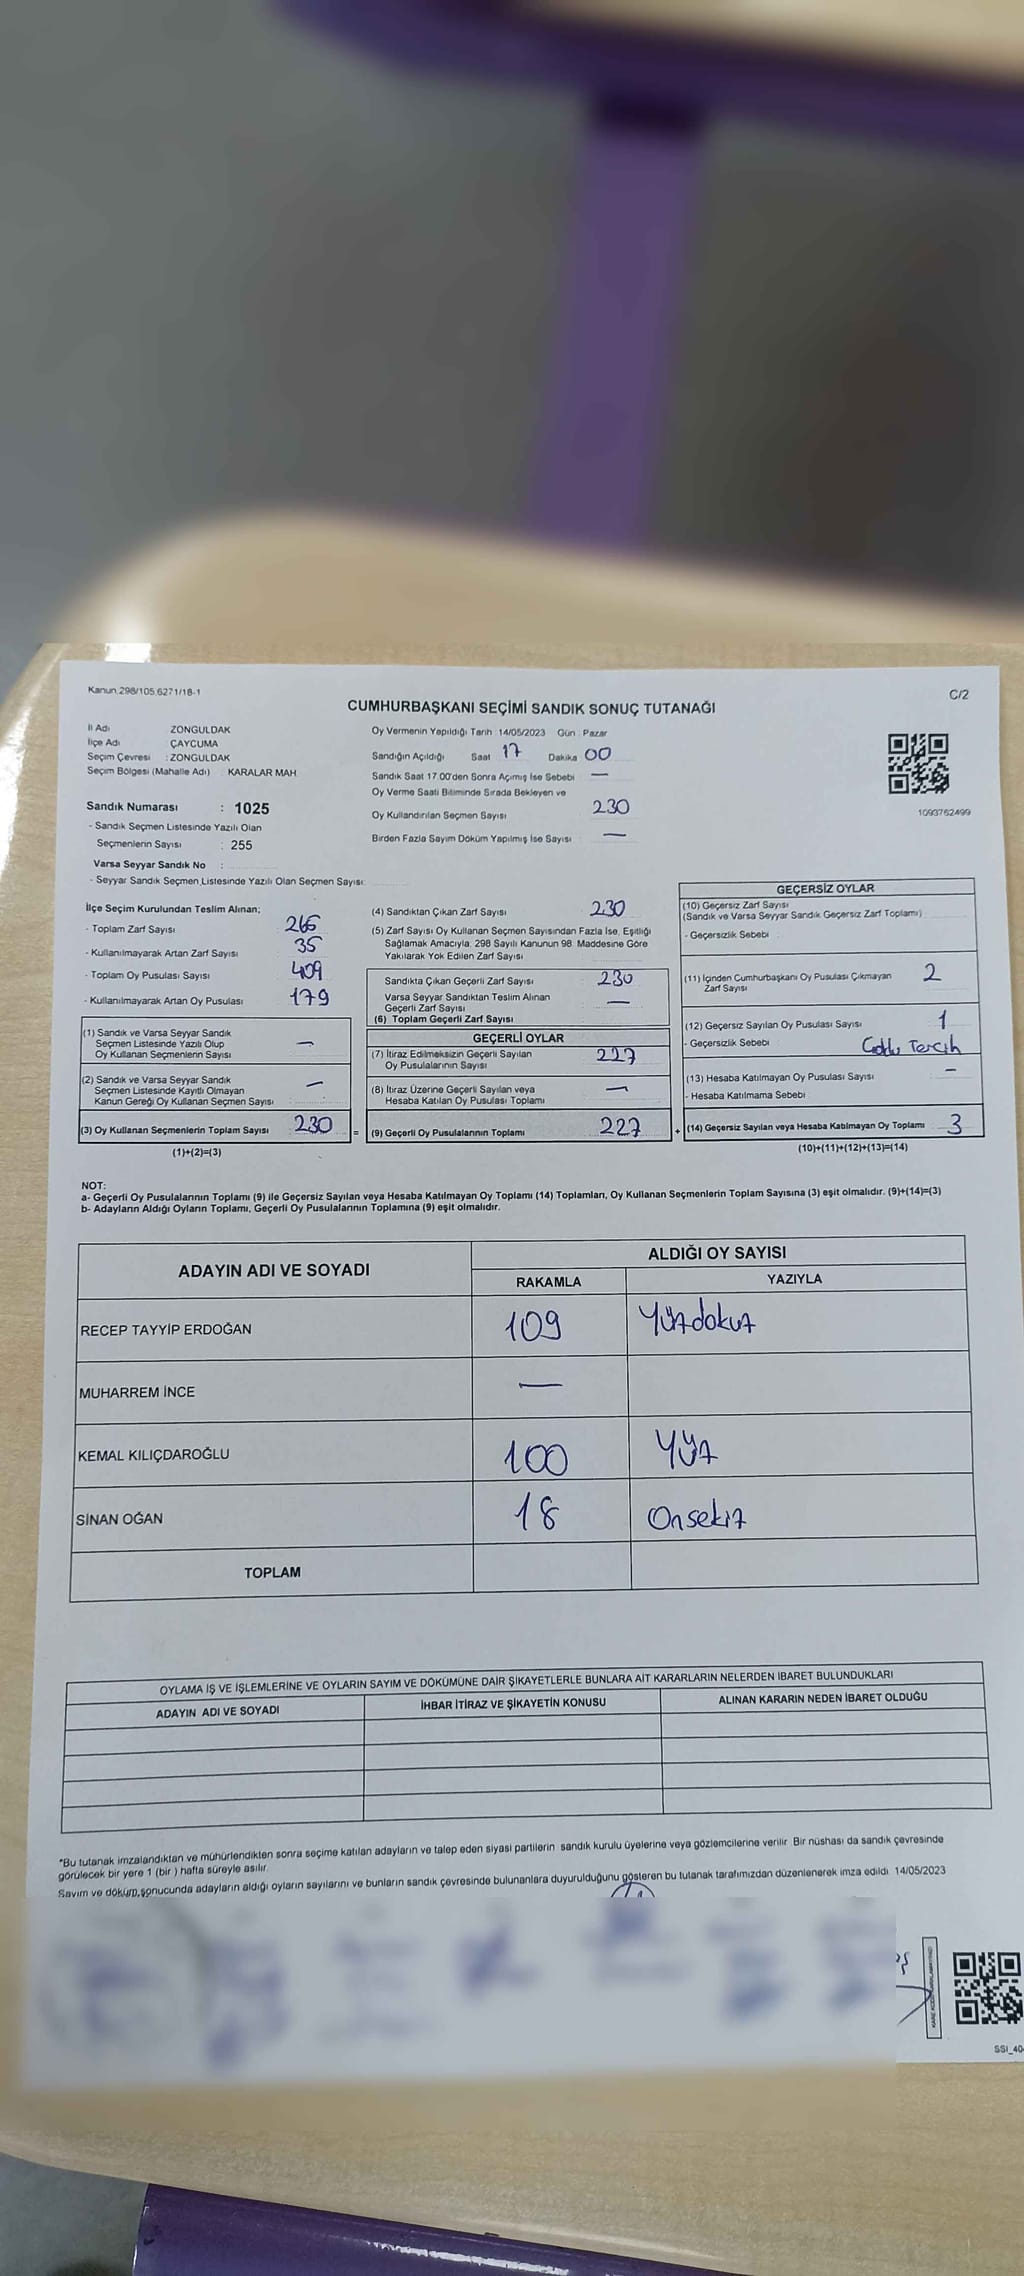 Kanun 298/105,6271/18-1
C/2
CUMHURBAŞKANI SEÇİMİ SANDIK SONUÇ TUTANAĞI
İl Adı ZONGULDAK
İlçe Adı ÇAYCUMA
Seçim Çevresi : ZONGULDAK
Seçim Bölgesi (Mahalle Adı) KARALAR MAH
Sandık Numarası : 1025
- Sandık Seçmen Listesinde Yazılı Olan
Seçmenlerin Sayısı : 255
Varsa Seyyar Sandık No :
- Seyyar Sandık Seçmen Listesinde Yazılı Olan Seçmen Sayısı:
Oy Vermenin Yapıldığı Tarih 14/05/2023 Gün Pazar
Sandığın Açıldığı Saat 17 Dakika 00
Sandık Saat 17.00'den Sonra Açımış İse Sebebi —
Oy Verme Saati Bitiminde Sırada Bekleyen ve
Oy Kullandırılan Seçmen Sayısı 230
Birden Fazla Sayım Döküm Yapılmış İse Sayısı —
1093762499
İlçe Seçim Kurulundan Teslim Alınan;
- Toplam Zarf Sayısı 265
- Kullanılmayarak Artan Zarf Sayısı 35
- Toplam Oy Pusulası Sayısı 409
- Kullanılmayarak Artan Oy Pusulası 179
(1) Sandık ve Varsa Seyyar Sandık
Seçmen Listesinde Yazılı Olup
Oy Kullanan Seçmenlerin Sayısı —
(2) Sandık ve Varsa Seyyar Sandık
Seçmen Listesinde Kayıtlı Olmayan
Kanun Gereği Oy Kullanan Seçmen Sayısı —
(3) Oy Kullanan Seçmenlerin Toplam Sayısı 230 =
(1)+(2)=(3)
(4) Sandıktan Çıkan Zarf Sayısı 230
(5) Zarf Sayısı Oy Kullanan Seçmen Sayısından Fazla İse, Eşitliği
Sağlamak Amacıyla, 298 Sayılı Kanunun 98. Maddesine Göre
Yakılarak Yok Edilen Zarf Sayısı
Sandıkta Çıkan Geçerli Zarf Sayısı 230
Varsa Seyyar Sandıktan Teslim Alınan
Geçerli Zarf Sayısı —
(6) Toplam Geçerli Zarf Sayısı
GEÇERLİ OYLAR
(7) İtiraz Edilmeksizin Geçerli Sayılan
Oy Pusulalarının Sayısı 227
(8) İtiraz Üzerine Geçerli Sayılan veya
Hesaba Katılan Oy Pusulası Toplamı —
(9) Geçerli Oy Pusulalarının Toplamı 227 +
GEÇERSİZ OYLAR
(10) Geçersiz Zarf Sayısı
(Sandık ve Varsa Seyyar Sandık Geçersiz Zarf Toplamı)
- Geçersizlik Sebebi
(11) İçinden Cumhurbaşkanı Oy Pusulası Çıkmayan
Zarf Sayısı 2
(12) Geçersiz Sayılan Oy Pusulası Sayısı 1
- Geçersizlik Sebebi Tercih
(13) Hesaba Katılmayan Oy Pusulası Sayısı —
- Hesaba Katılmama Sebebi
(14) Geçersiz Sayılan veya Hesaba Katılmayan Oy Toplamı 3
(10)+(11)+(12)+(13)=(14)
NOT:
a- Geçerli Oy Pusulalarının Toplamı (9) ile Geçersiz Sayılan veya Hesaba Katılmayan Oy Toplamı (14) Toplamları, Oy Kullanan Seçmenlerin Toplam Sayısına (3) eşit olmalıdır. (9)+(14)=(3)
b- Adayların Aldığı Oyların Toplamı, Geçerli Oy Pusulalarının Toplamına (9) eşit olmalıdır.
ADAYIN ADI VE SOYADI
ALDIĞI OY SAYISI
RAKAMLA YAZIYLA
RECEP TAYYİP ERDOĞAN 109 Yüzdokuz
MUHARREM İNCE —
KEMAL KILIÇDAROĞLU 100 Yüz
SİNAN OĞAN 18 Onsekiz
TOPLAM
OYLAMA İŞ VE İŞLEMLERİNE VE OYLARIN SAYIM VE DÖKÜMÜNE DAİR ŞİKAYETLERLE BUNLARA AİT KARARLARIN NELERDEN İBARET BULUNDUKLARI
ADAYIN ADI VE SOYADI İHBAR İTİRAZ VE ŞİKAYETİN KONUSU ALINAN KARARIN NEDEN İBARET OLDUĞU
*Bu tutanak imzalandıktan ve mühürlendikten sonra seçime katılan adayların ve talep eden siyasi partilerin sandık kurulu üyelerine veya gözlemcilerine verilir. Bir nüshası da sandık çevresinde
görülecek bir yere 1 (bir ) hafta süreyle asılır.
Sayım ve döküm sonucunda adayların aldığı oyların sayılarını ve bunların sandık çevresinde bulunanlara duyurulduğunu gösteren bu tutanak tarafımızdan düzenlenerek imza edildi. 14/05/2023
SSI_40